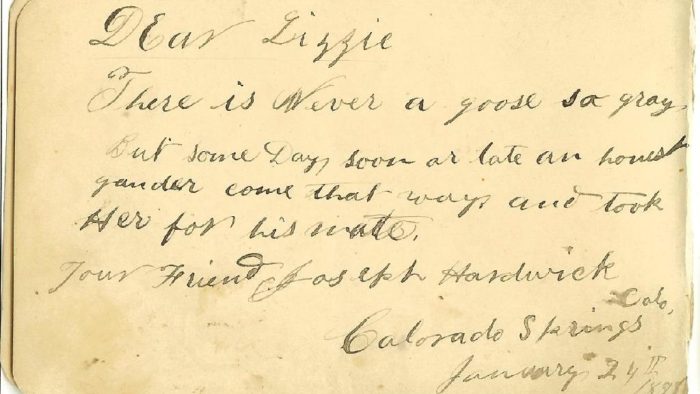 Dear Lizzie
There is Never a goose so gray,
But some Day soon or late an honest
gander come that way and took
Her for his mate.
Your Friend Joseph Hardwick
Colo,
Colorado Springs
January 24th